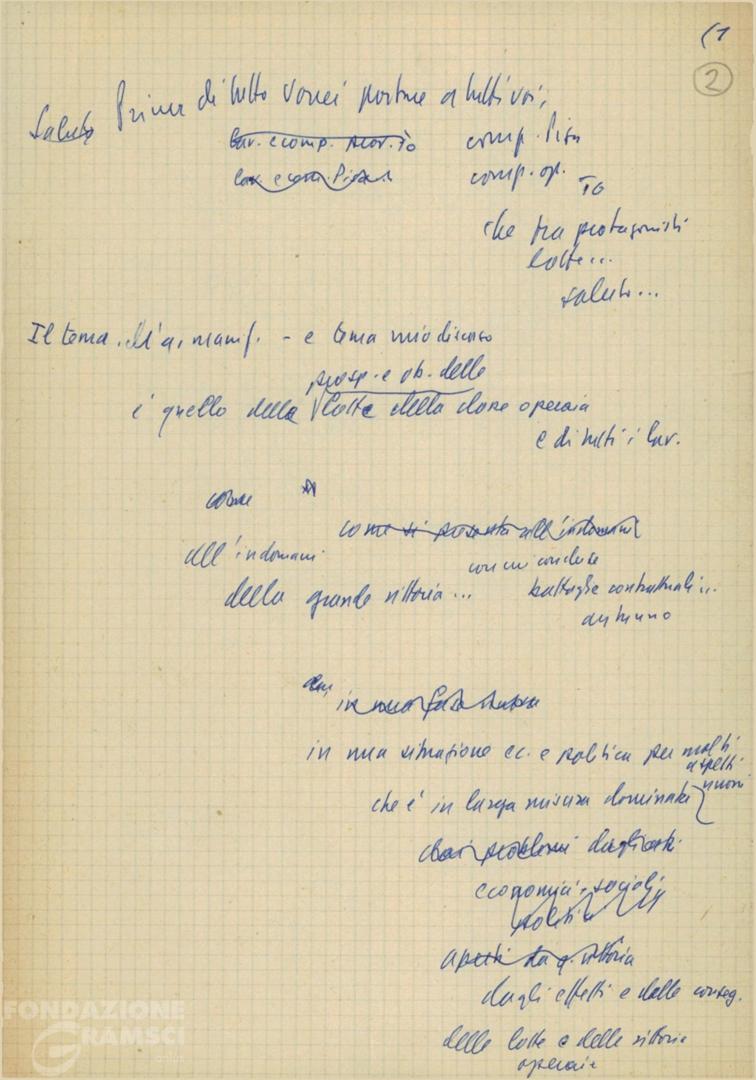 (1
2
Prima di tutto vorrei portare a tutti voi,
Saluto
lav. e comp. prov. To comp. Pisa
lav. e com. Pisa comp. op. TO
che tra protagonisti
lotte...
saluto...
Il tema, manif. - e tema mio discorso
prosp. e ob. delle
è quello della lotte della classe operaia
e di tutti i lav.
come
come si presenta all'indomani
all'indomani con cui concluse
della grande vittoria... battaglie contrattuali...
autunno
in una fase nuova
in una situazione ec. e politica per molti
aspetti
nuovi
che è in larga misura dominata
dai problemi dagli
economici-sociali
politici
aperti da q. vittoria
dagli effetti e dalle conseg.
delle lotte e delle vittorie
operaie
FONDAZIONE
GRAMSCI